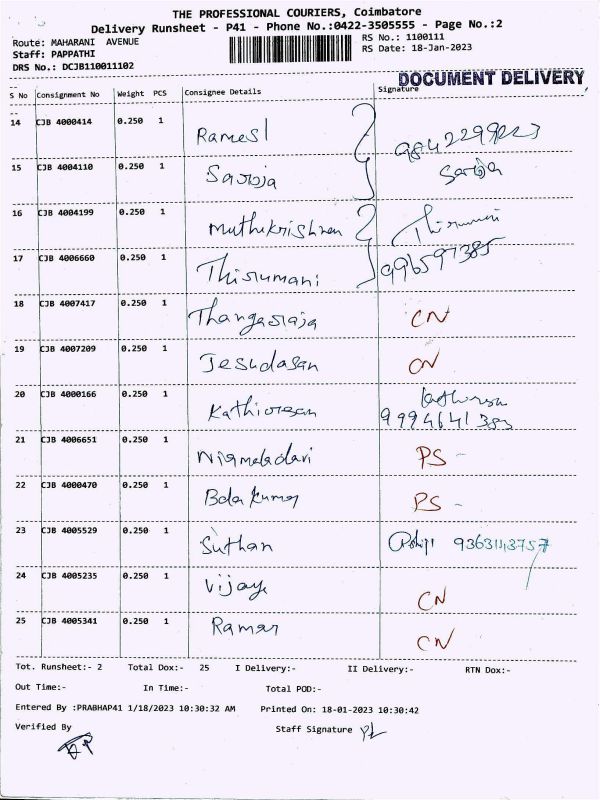 THE PROFESSIONAL COURIERS, Coimbatore
Delivery Runsheet - P41 - Phone No.:0422-3505555 - Page No.:2
Route: MAHARANI AVENUE RS No.: 1100111
Staff: PAPPATHI RS Date: 18-Jan-2023
DRS No.: DCJB110011102
DOCUMENT DELIVERY
S No Consignment No Weight PCS Consignee Details Signature
14 CJB 4000414 0.250 1 Ramesl
15 CJB 4004110 0.250 1 Saroja Saroja
16 CJB 4004199 0.250 1 Muthukrishnan Thirumani
17 CJB 4006660 0.250 1 Thirumani 996597385
18 CJB 4007417 0.250 1 Thangaraja CN
19 CJB 4007209 0.250 1 Jesudasan CN
20 CJB 4000166 0.250 1 Kathiresan
21 CJB 4006651 0.250 1 Nirmaladevi PS -
22 CJB 4000470 0.250 1 Bala Kumar PS -
23 CJB 4005529 0.250 1 Suthan
24 CJB 4005235 0.250 1 Vijaya CN
25 CJB 4005341 0.250 1 Raman CN
Tot. Runsheet:- 2 Total Dox:- 25 I Delivery:- II Delivery:- RTN Dox:-
Out Time:- In Time:- Total POD:-
Entered By :PRABHAP41 1/18/2023 10:30:32 AM Printed On: 18-01-2023 10:30:42
Verified By Staff Signature